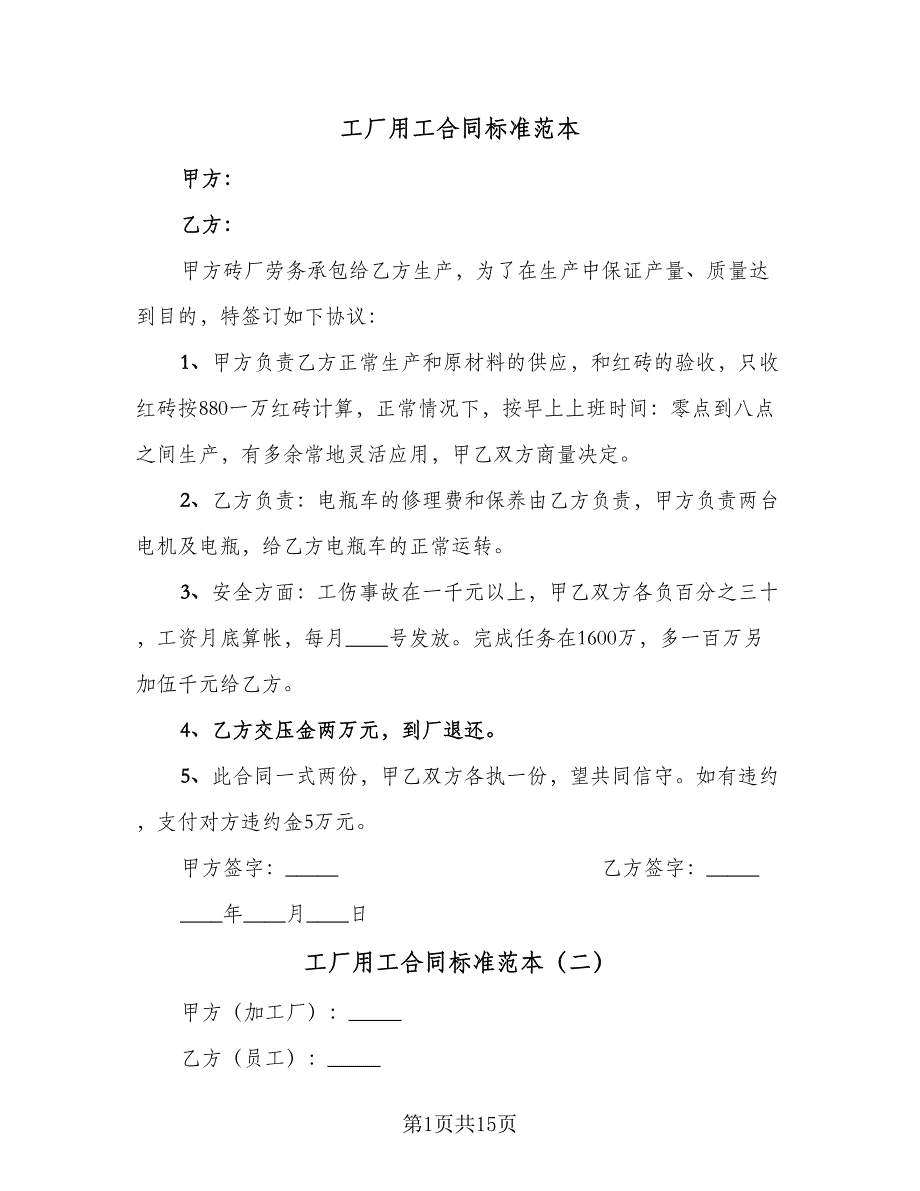 工厂用工合同标准范本
甲方：
乙方：
甲方砖厂劳务承包给乙方生产，为了在生产中保证产量、质量达
到目的，特签订如下协议：
1、甲方负责乙方正常生产和原材料的供应，和红砖的验收，只收
红砖按880一万红砖计算，正常情况下，按早上上班时间：零点到八点
之间生产，有多余常地灵活应用，甲乙双方商量决定。
2、乙方负责：电瓶车的修理费和保养由乙方负责，甲方负责两台
电机及电瓶，给乙方电瓶车的正常运转。
3、安全方面：工伤事故在一千元以上，甲乙双方各负百分之三十
，工资月底算帐，每月____号发放。完成任务在1600万，多一百万另
加伍千元给乙方。
4、乙方交压金两万元，到厂退还。
5、此合同一式两份，甲乙双方各执一份，望共同信守。如有违约
，支付对方违约金5万元。
甲方签字：_____ 乙方签字：_____
____年____月____日
工厂用工合同标准范本（二）
甲方（加工厂）：_____
乙方（员工）：_____
第1页共15页